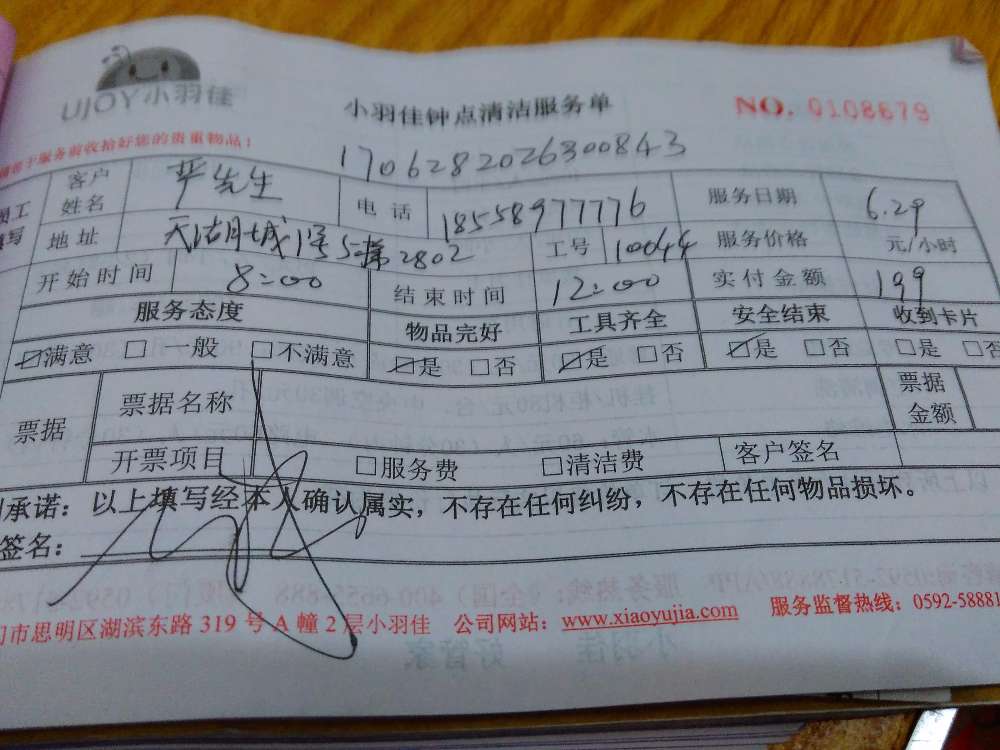 UJOY小羽佳
小羽佳钟点清洁服务单
NO. 0108679
于服务前收拾好您的贵重物品!
1706282026300843
客户姓名 严先生 电话 18558977776 服务日期 6.29
地址 天湖城 2802 工号 10044 服务价格 元/小时
开始时间 8:00 结束时间 12:00 实付金额 199
服务态度 物品完好 工具齐全 安全结束 收到卡片
☑满意 □一般 □不满意 ☑是 □否 ☑是 □否 ☑是 □否 □是 □否
票据 票据名称 票据金额
开票项目 □服务费 □清洁费 客户签名
承诺:以上填写经本人确认属实,不存在任何纠纷,不存在任何物品损坏。
签名:
门市思明区湖滨东路 319 号 A 幢 2 层小羽佳 公司网站:www.xiaoyujia.com 服务监督热线:0592-58881